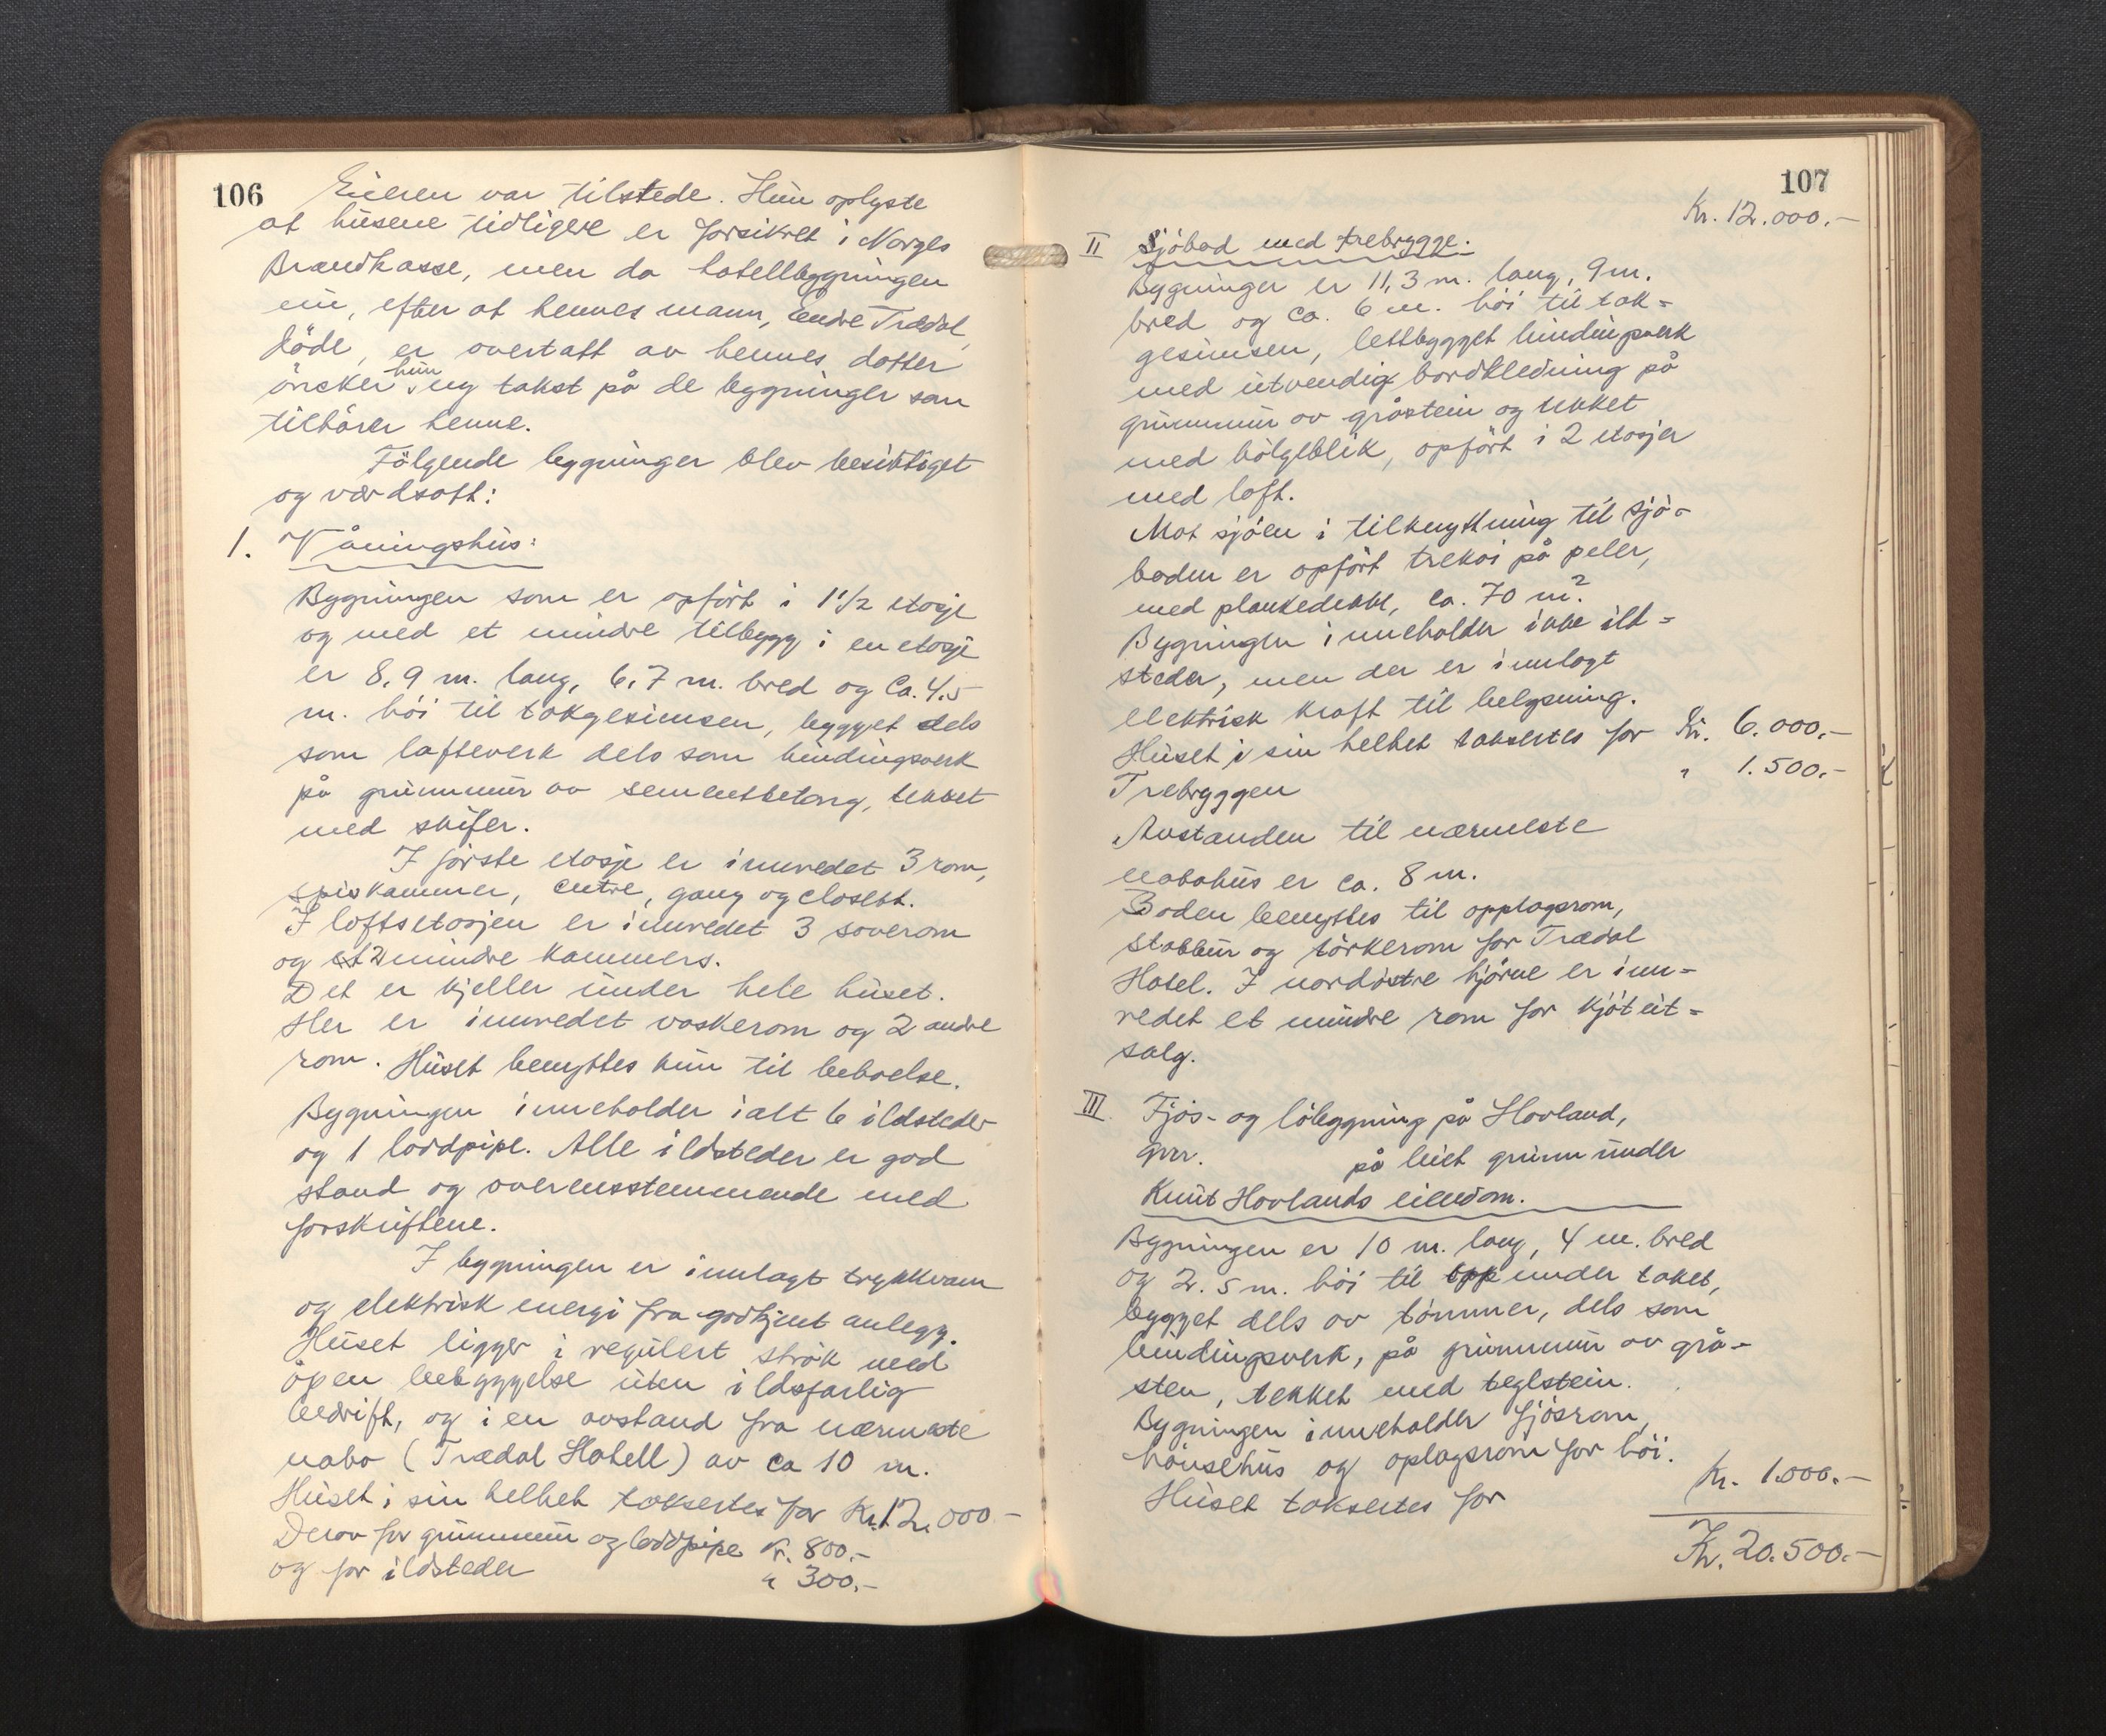 106
Eieren var tilstede. Hun oplyste
at husene tidligere er forsikret i Norges
Brandkasse, men da hotellbygningen
nu, efter at hennes mann, Endre Trædal,
döde, er overtatt av hennes dotter
önsker hun ny takst på de bygninger som
tilhörer henne.
Fölgende bygninger blev besiktiget
og værdsatt:
1. Våningshus:
Bygningen som er opfört i 1 1/2 etasje
og med et mindre tilbygg i en etasje
er 8,9 m. lang, 6,7 m. bred og ca. 4,5
m. höi til takgesimsen, bygget dels
som lafteverk dels som bindingsverk
på grunnmur av sementbetong, tekket
med skifer.
I förste etasje er innredet 3 rom,
spiskammer, entre, gang og closett.
I loftsetasjen er innredet 3 soverom
og 2 mindre kammers.
Det er kjeller under hele huset.
Her er innredet vaskerom og 2 andre
rom. Huset benyttes kun til beboelse.
Bygningen inneholder ialt 6 ildsteder
og 1 loddpipe. Alle ildsteder er god
stand og overensstemmende med
forskriftene.
I bygningen er innlagt trykkvann
og elektrisk energi fra godkjent anlegg.
Huset ligger i regulert strök med
åpen bebyggelse uten ildsfarlig
bedrift, og i en avstand fra nærmeste
nabo (Trædal Hotell) av ca 10 m.
Huset i sin helhet takseres for Kr. 12.000.-
Derav for grunnmur og loddpipe Kr. 800.-
og for ildsteder " 300.-
107
Kr. 12.000.-
II Sjöbod med trebrygge.
Bygninger er 11,3 m. lang, 9 m.
bred og ca. 6 m. höi til tak=
gesimsen, lettbygget bindingsverk
med utvendig bordkledning på
grunnmur av gråstein og tekket
med bölgeblik, opfört i 2 etasjer
med loft.
Mot sjöen i tilknyttning til sjö-
boden er opfört trekai på peler,
med plankedekke, ca. 70 m².
Bygningen inneholder ikke ild=
steder, men der er innlagt
elektrisk kraft til belysning.
Huset i sin helhet takseres for Kr. 6.000.-
Trebryggen " 1.500.-
Avstanden til nærmeste
nabohus er ca. 8 m.
Boden benyttes til opplagsrom,
stabbur og törkerom for Trædal
Hotel. I nordöstre hjörne er inn=
redet et mindre rom for kjötut=
salg.
III. Fjös- og löbygning på Hovland,
gnr. på leiet grunn under
Knut Hovlands eiendom.
Bygningen er 10 m. lang, 4 m. bred
og 2.5 m. höi til opp under taket,
bygget dels av tömmer, dels som
bindingsverk, på grunnmur av grå-
sten, tekket med teglstein.
Bygningen inneholder fjösrom,
hönsehus og oplagsrom for höi.
Huset takseres for Kr. 1.000.-
Kr. 20.500.-